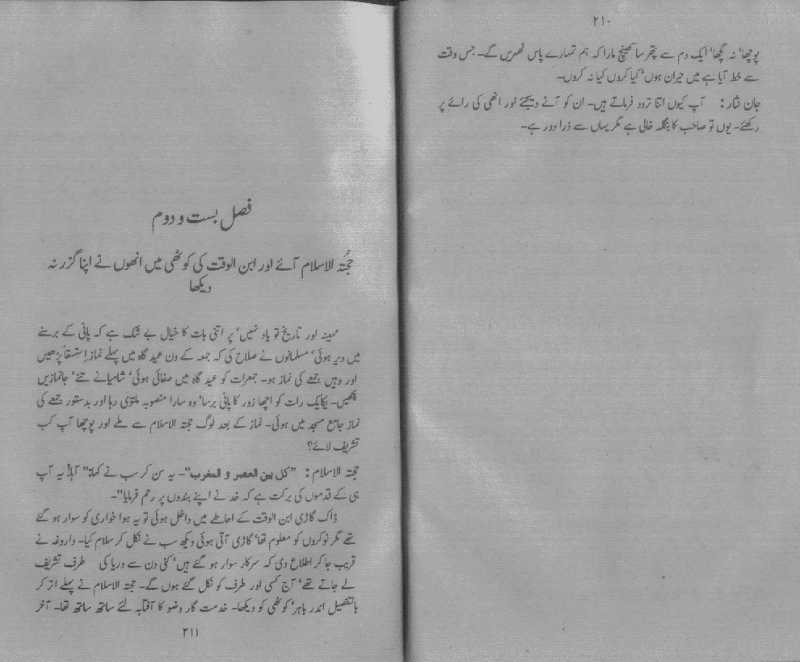 ۲۱۰
پوچھا‘ نہ گچھا‘ ایک دم سے پتھر سا کھینچ مارا کہ ہم تمہارے پاس ٹھریں گے۔ جس وقت
سے خط آیا ہے میں حیران ہوں‘ کیا کروں کیا نہ کروں۔
جان نثار: آپ کیوں اتنا تردد فرماتے ہیں۔ ان کو آنے دیجئے اور انھی کی رائے پر
رکھئے۔ یوں تو صاحب کا بنگلہ خالی ہے مگر یہاں سے ذرا دور ہے۔
فصل بست و دوم
حجتہ الاسلام آئے اور ابن الوقت کی کوٹھی میں انھوں نے اپنا گزر نہ
دیکھا
مہینہ اور تاریخ تو یاد نہیں‘ پر اتنی بات کا خیال بے شک ہے کہ پانی کے برسنے
میں دیر ہوئی‘ مسلمانوں نے صلاح کی کہ جمعہ کے دن عید گاہ میں پہلے نماز استسقا پڑھیں
اور وہیں جمعے کی نماز ہو۔ جمعرات کو عید گاہ میں صفائی ہوئی‘ شامیانے تنے‘ جانمازیں
بچھیں۔ یکایک رات کو اچھا زور کا پانی برسا‘ وہ سارا منصوبہ ملتوی رہا اور بدستور جمعے کی
نماز جامع مسجد میں ہوئی۔ نماز کے بعد لوگ حجتہ الاسلام سے ملے اور پوچھا آپ کب
تشریف لائے؟
حجتہ الاسلام: ”کل بین العصر و المغرب“۔ یہ سن کر سب نے کہا: ”آہا! یہ آپ
ہی کے قدموں کی برکت ہے کہ خد نے اپنے بندوں پر رحم فرمایا“۔
ڈاک گاڑی ابن الوقت کے احاطے میں داخل ہوئی تو یہ ہوا خواری کو سوار ہو گئے
تھے مگر نوکروں کو معلوم تھا‘ گاڑی آتی ہوئی دیکھ سب نے نکل کر سلام کیا۔ داروغہ نے
قریب جا کر اطلاع دی کہ سرکار سوار ہو گئے ہیں‘ کئی دن سے دریا کی طرف تشریف
لے جاتے تھے‘ آج کسی اور طرف کو نکل گئے ہوں گے۔ حجتہ الاسلام نے پہلے اتر کر
بالتفصیل اندر باہر‘ کوٹھی کو دیکھا۔ خدمت گار وضو کا آفتابہ لئے ساتھ ساتھ تھا۔ آخر
۲۱۱